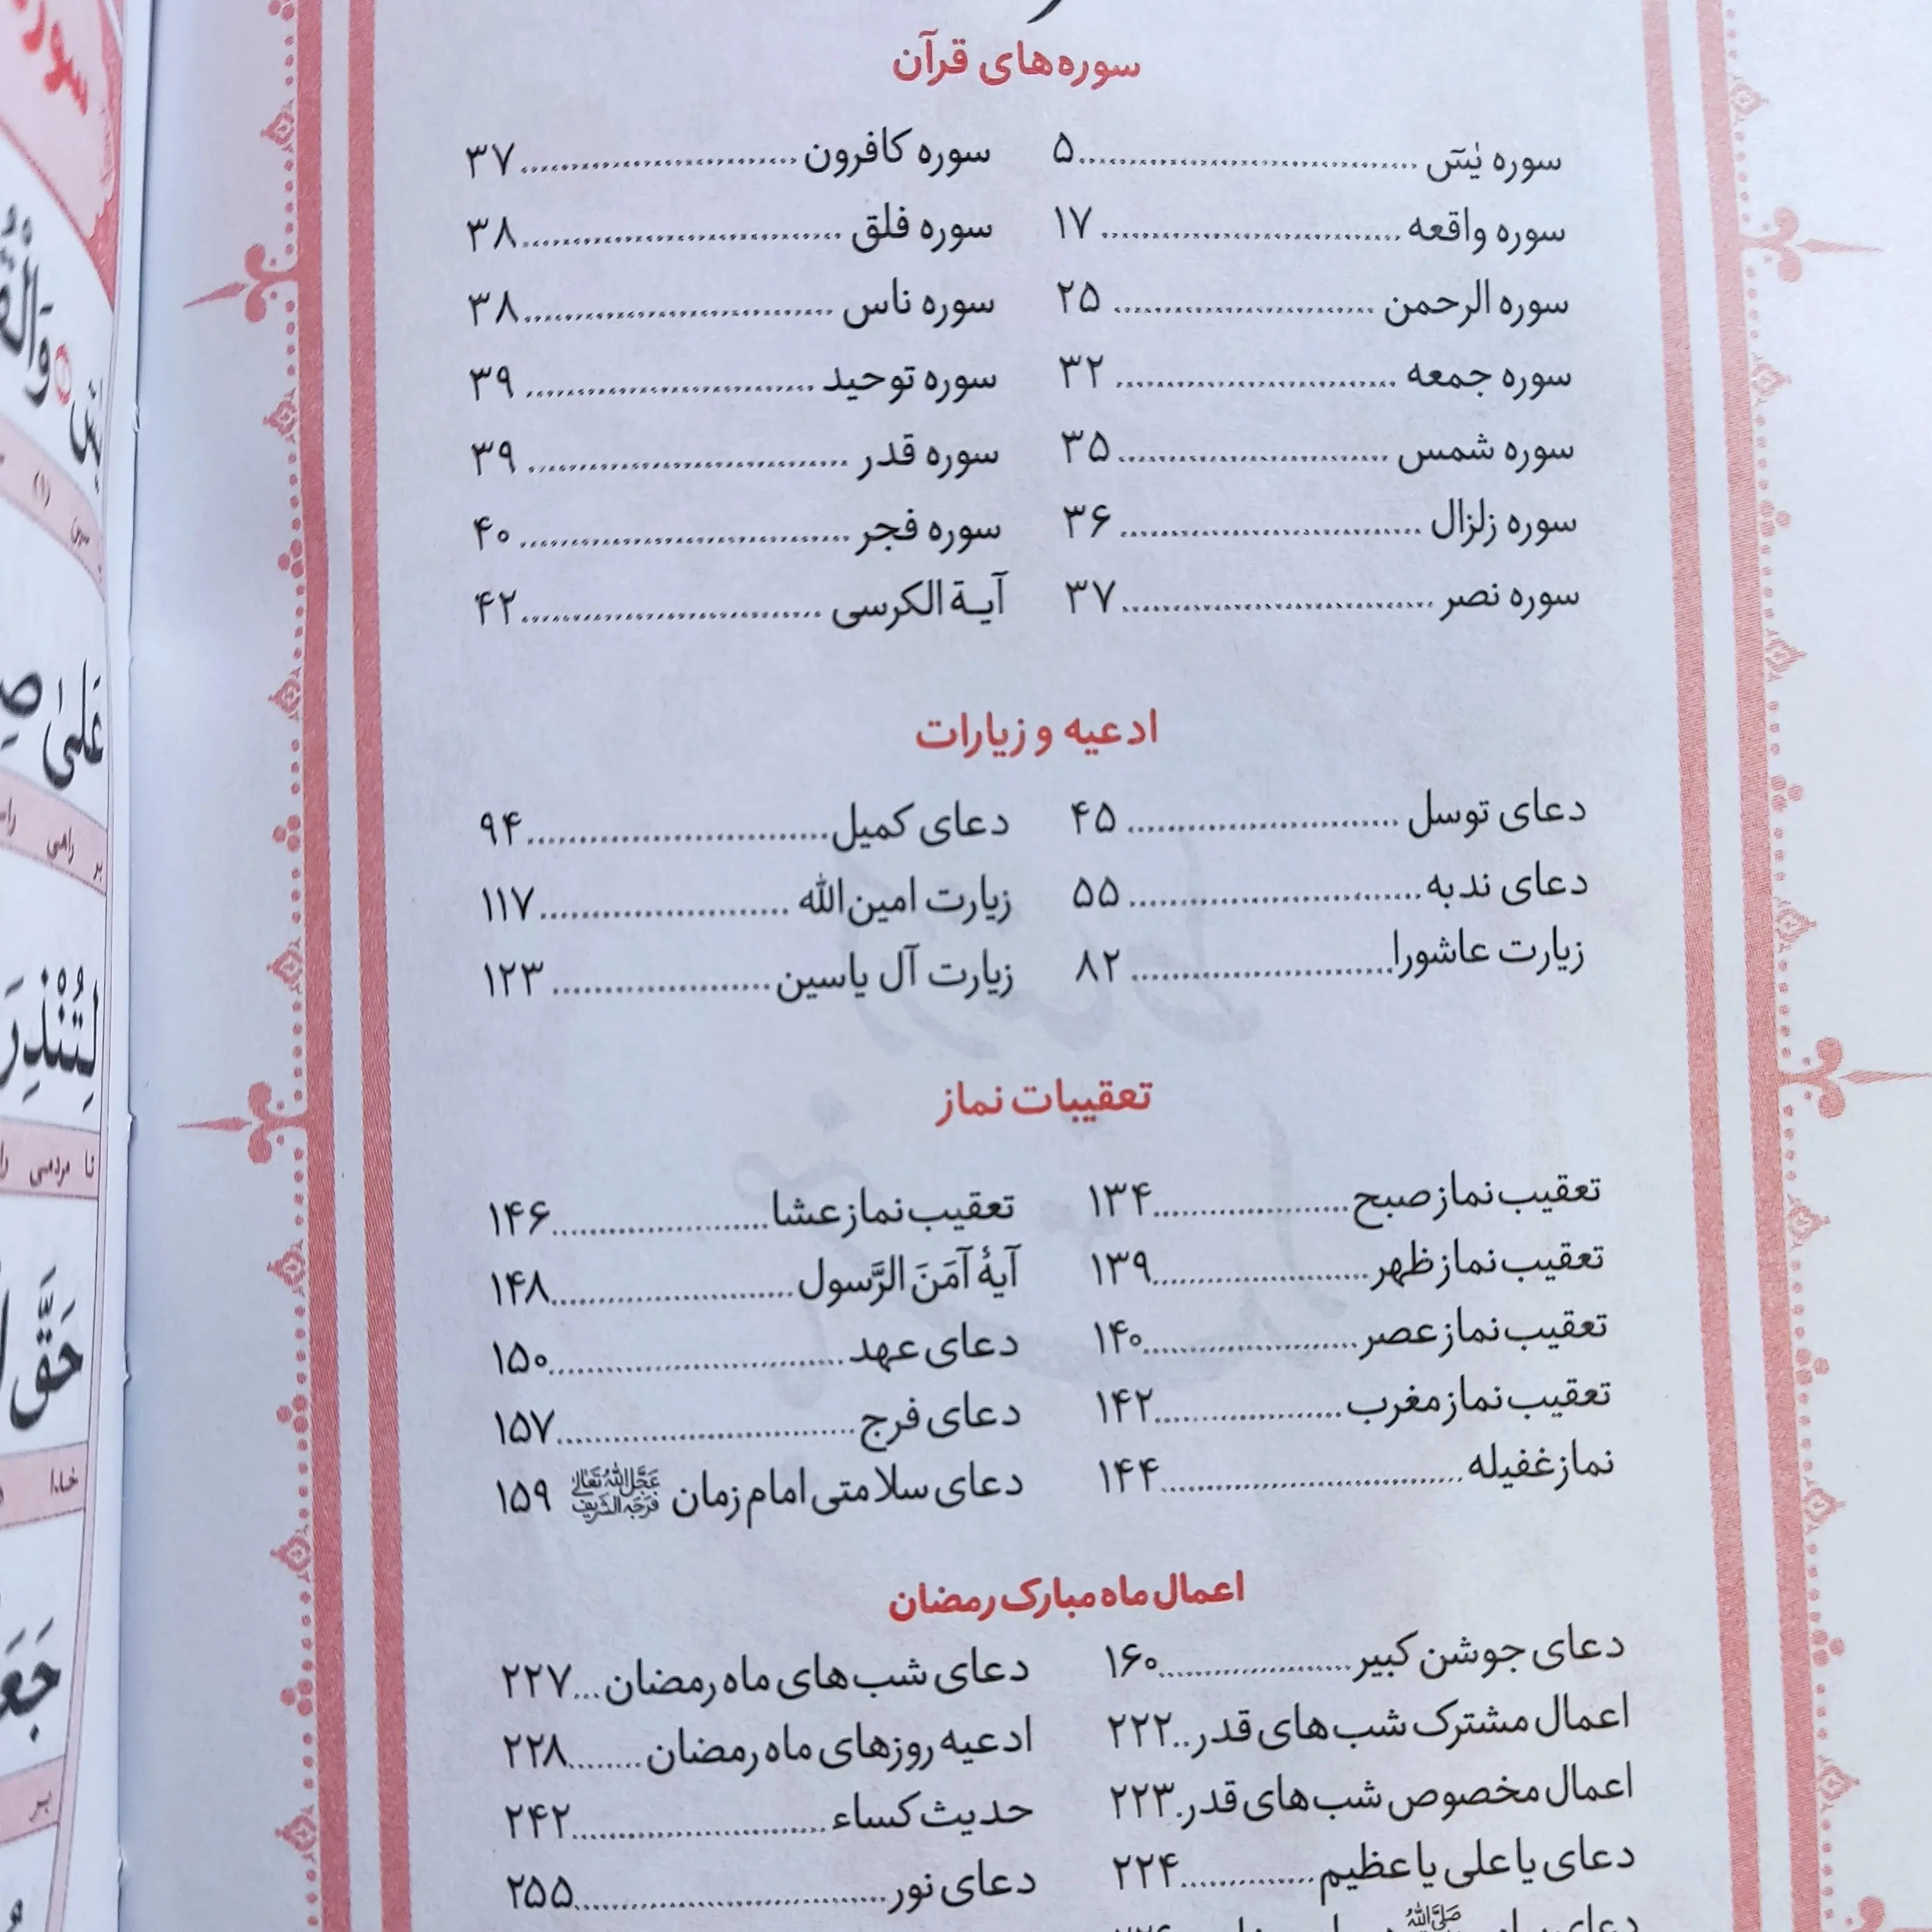 سوره‌های قرآن
سوره یٰسٓ ........ ۵
سوره واقعه ........ ۱۷
سوره الرحمن ........ ۲۵
سوره جمعه ........ ۳۲
سوره شمس ........ ۳۵
سوره زلزال ........ ۳۶
سوره نصر ........ ۳۷
سوره کافرون ........ ۳۷
سوره فلق ........ ۳۸
سوره ناس ........ ۳۸
سوره توحید ........ ۳۹
سوره قدر ........ ۳۹
سوره فجر ........ ۴۰
آیـة الکرسی ........ ۴۲
ادعیه و زیارات
دعای توسل ........ ۴۵
دعای ندبه ........ ۵۵
زیارت عاشورا ........ ۸۲
دعای کمیل ........ ۹۴
زیارت امین‌الله ........ ۱۱۷
زیارت آل یاسین ........ ۱۲۳
تعقیبات نماز
تعقیب نماز صبح ........ ۱۳۴
تعقیب نماز ظهر ........ ۱۳۹
تعقیب نماز عصر ........ ۱۴۰
تعقیب نماز مغرب ........ ۱۴۲
نماز غفیله ........ ۱۴۴
تعقیب نماز عشا ........ ۱۴۶
آیۀ آمَنَ الرَّسول ........ ۱۴۸
دعای عهد ........ ۱۵۰
دعای فرج ........ ۱۵۷
دعای سلامتی امام زمان عَجَّلَ اللهُ تَعَالیٰ فَرَجَهُ الشَّرِیف ۱۵۹
اعمال ماه مبارک رمضان
دعای جوشن کبیر ........ ۱۶۰
اعمال مشترک شب‌های قدر..۲۲۲
اعمال مخصوص شب‌های قدر.۲۲۳
دعای یا علی یا عظیم ........ ۲۲۴
دعای شب‌های ماه رمضان...۲۲۷
ادعیه روزهای ماه رمضان ........ ۲۲۸
حدیث کساء ........ ۲۴۲
دعای نور ........ ۲۵۵
عَلیٰ
لِتُنْذِرَ
تا مردمی را
حَقَّ